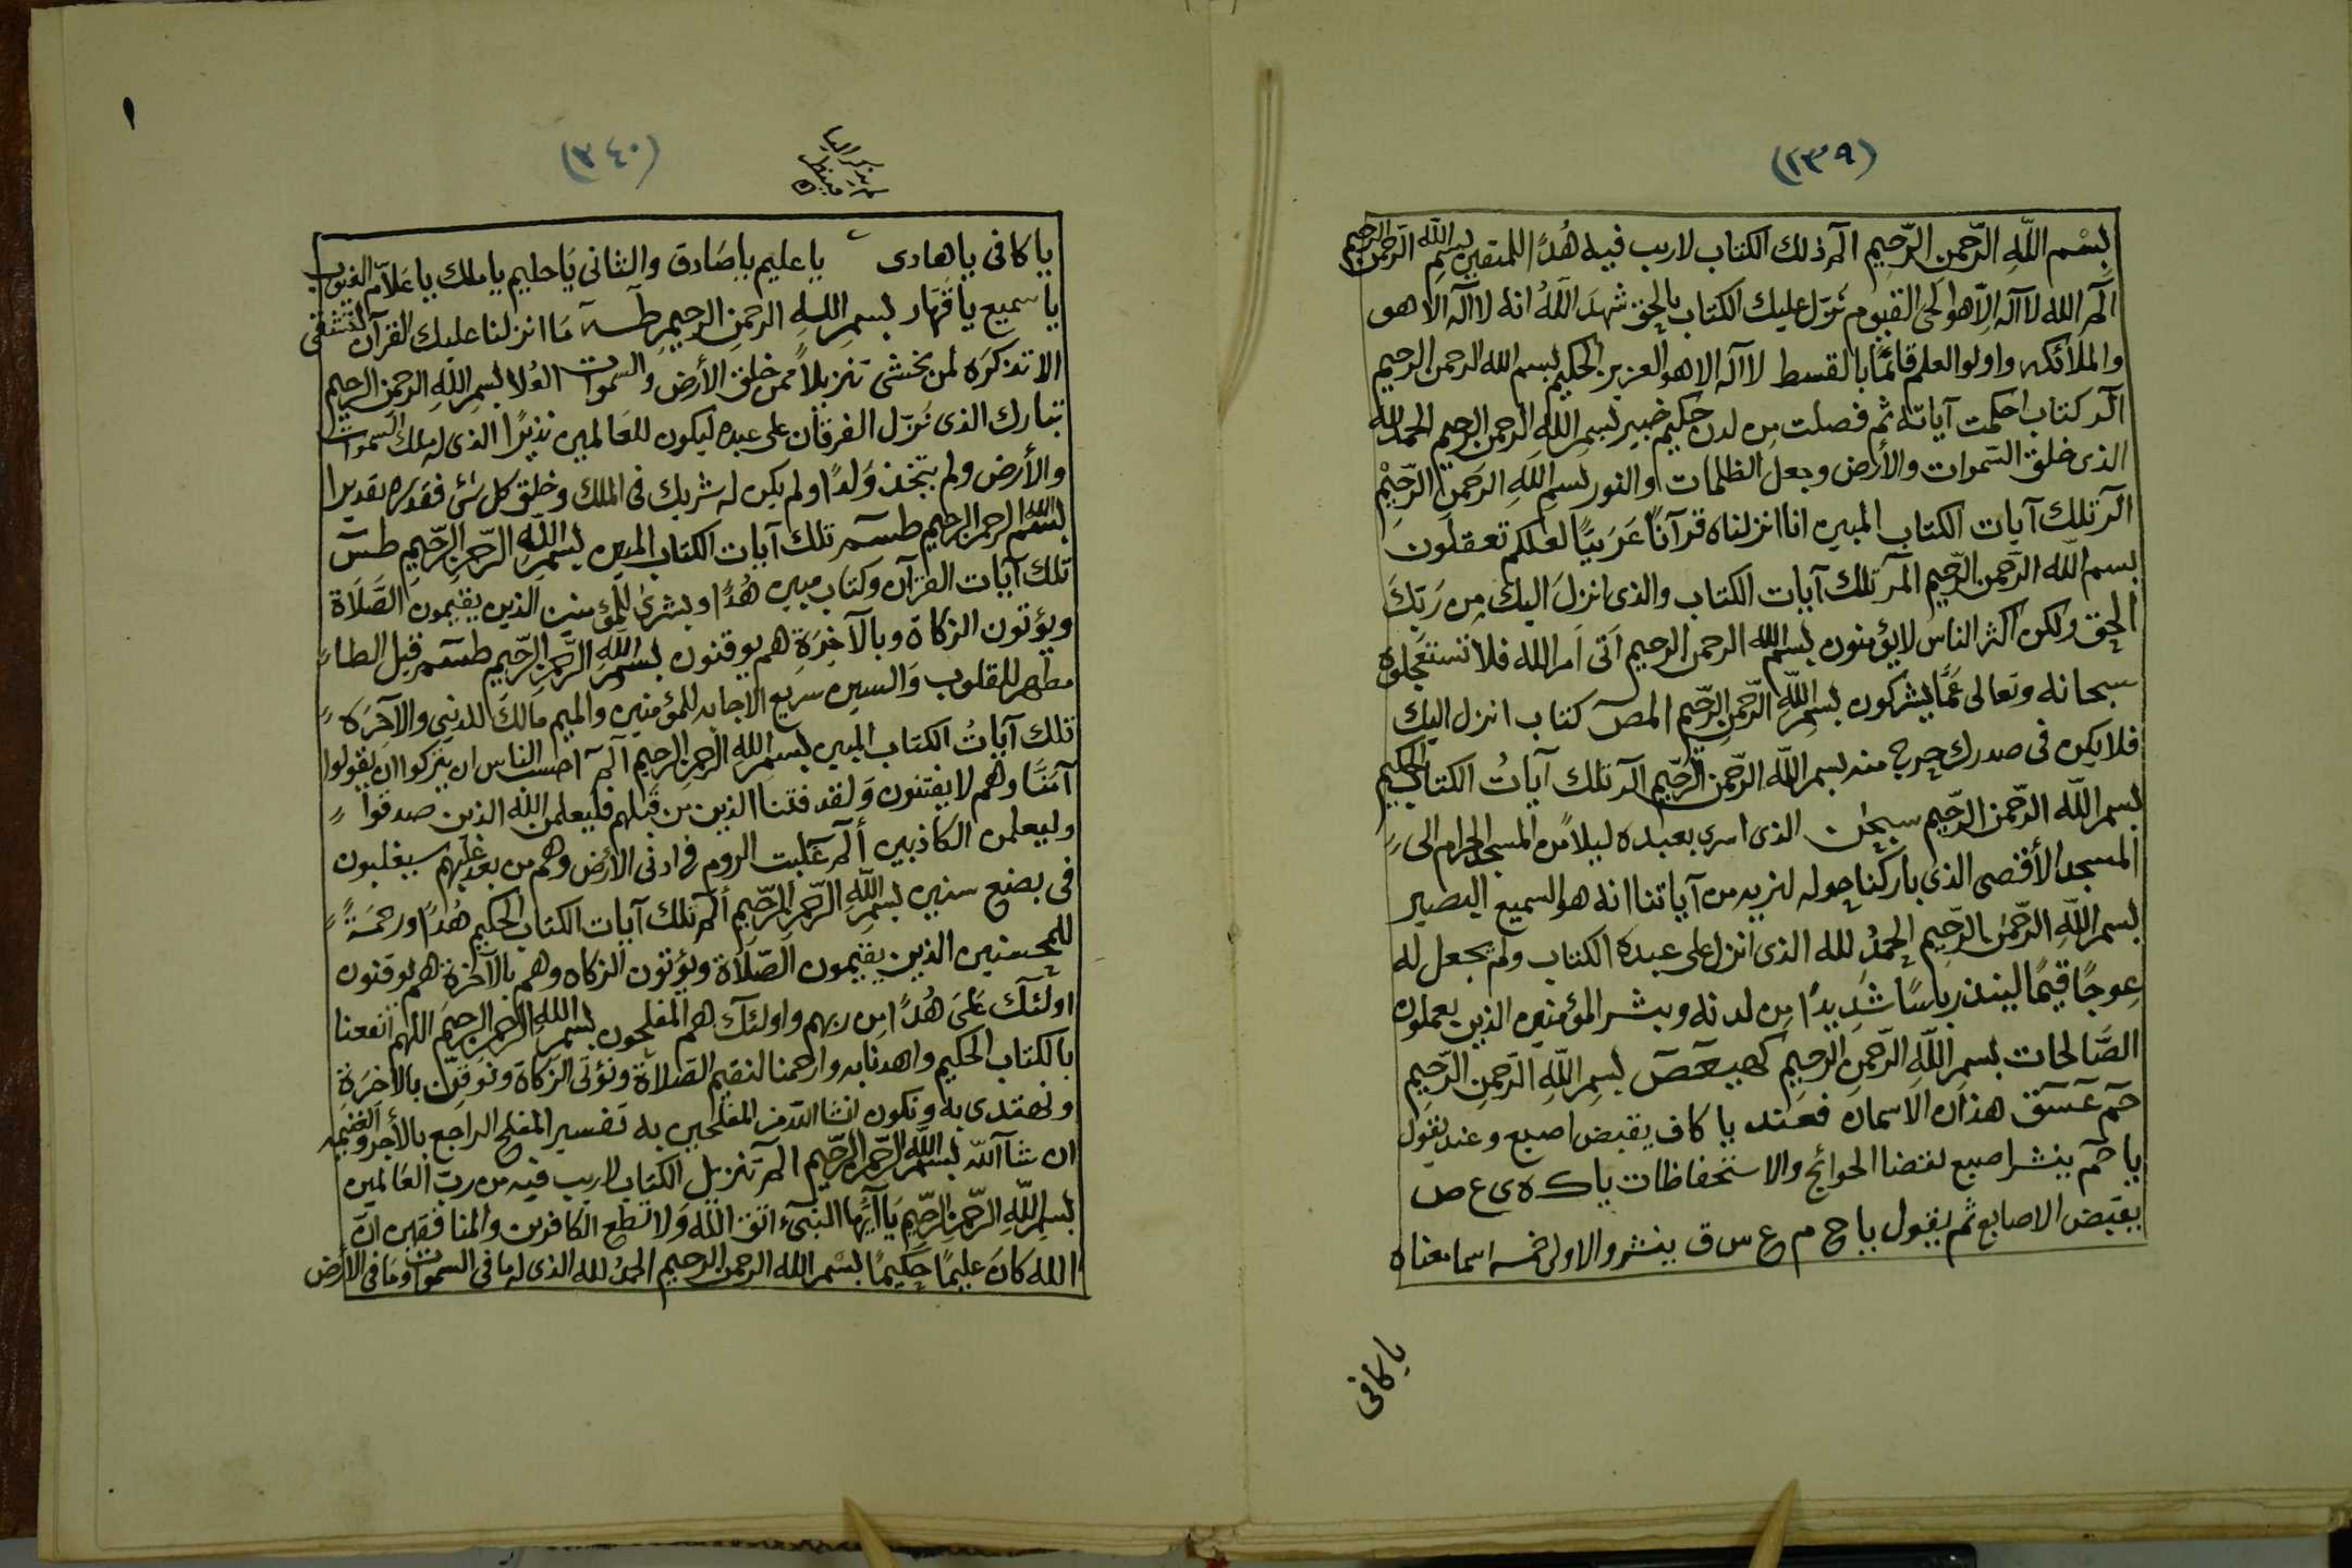 (٢٣٩)
بِسْمِ اللَّهِ الرَّحمنِ الرَّحِيمِ الم ذلك الكتاب لاريب فيه هُدًا للمتقين بسمِ اللَّهِ الرَّحمنِ الرحيم
آلم الله لا آله الّا هو الحَى القيوم نَزّل عليك الكتاب بالحق شَهِدَ اللَّهُ انه لا آله الا هو
والملآئكه واولوا العلم قائمًا بالقسط لا آله الا هو العزيز الحكيم بسم الله الرحمن الرحيم
آلر كتاب احكمت آياته ثم فصلت مِن لدن حكيم خبير بسمِ اللَّهِ الرحمن الرحيم الحمد لله
الذى خلق السّموات والأرض وجعل الظلمات والنور بسمِ اللهِ الرحمنِ الرّحِيْمِ
آلر تلك آيات الكتاب المبين انا انزلناه قرآنًا عَرَبيًّا لعلكم تعقلون
بسم الله الرَّحمن الرَّحيم المر تلك آيات الكتاب والذى انزلَ اليك مِن رَبّكَ
الحق ولكن اكثر الناس لايؤمنون بسم الله الرحمن الرحيم اَتى اَمر الله فلا تستعجلوه
سبحانه وتعالى عَمَّا يشركون بسمِ اللَّهِ الرَّحمنِ الرَّحيم المصَ كتاب انزل اليك
فلا يكن فى صدرك حرج منه بسم اللَّه الرَّحمن الرَّحيم آلر تلك آياتُ الكتاب الحكيم
بسم اللَّه الرَّحمن الرَّحيم سبحٰن الذى اسرى بعبده ليلاً من المسجد الحرام الى
المسجد الأقصى الذى باركنا حوله لنريه من آياتنا انه هو السميع البصير
بسم اللَّهِ الرَّحمٰن الرَّحِيم الحمدُ لله الذى انزل على عبده الكتاب ولم يجعل له
عِوجًا قيمًا لينذر باسًا شَدِيدًا مِن لدنه ويبشر المؤمنين الذين يعملون
الصَّالحات بسمِ اللَّهِ الرَّحمنِ الرَّحيمِ كهيعص بسمِ اللَّهِ الرَّحمنِ الرَّحيمِ
حم عسق هذان الاسمان فعند يا كاف يقبض اصبع وعند يقول
يا حم ينشر اصبع لقضا الحوائج والاستحفاظات يا ك ه ى ع ص
يقبض الاصابع ثم يقول يا ح م ع س ق ينشر والاولى خمسه اسما معناه
يا كافى
(٣٤٠)
١
يا كافى يا هادى يا عليم يا صَادق والثانى يَا حليم يا ملك يا عَلاّم الغيوب
يا سميع يا قهَار بسمِ اللهِ الرحمنِ الرحيمِ طه مَا انزلنا عليك القرآن لتشقى
الا تذكرَه لمن يخشى تنزيلاً ممن خلق الأرض والسموات العُلا بسمِ اللَّهِ الرحمن الرحيم
تبارك الذى نَزّل الفرقان على عبده ليكون للعَالمين نذيرًا الذى له ملك السموات
والأرض ولم يتخذ وَلدًا ولم يكن له شريك فى الملك وخلق كل شىَ فقدره تقديرا
بسم الله الرحمن الرحيم طسم تلك آيات الكتاب المبين بسمِ اللَّهِ الرَّحمنِ الرَّحيمِ طس
تلك آيات القرآن وكتاب مبين هُدًا وبشرىٰ للمؤمنين الذين يقيمون الصَّلَاة
ويؤتون الزكاة وبالآخِرَةِ هم يوقنون بسمِ اللَّهِ الرَّحمنِ الرَّحيم طسم قبل الطاء
مطهر للقلوب وَالسين سريع الاجابه للمؤمنين والميم مالك للدنيى والآخِرَه
تلك آياتُ الكتاب المبين بسمِ اللهِ الرحمنِ الرحيم آلم احسب الناس ان يتركوا ان يقولوا
آمَنّا وهم لا يفتنون وَلقد فتنا الذين من قبلهم فليعلمن الله الذين صدقوا
وليعلمن الكاذبين ألم غلبت الروم فى ادنى الأرض وهم من بعد غلبهم سيغلبون
فى بضع سنين بسمِ اللَّهِ الرَّحمنِ الرَّحيم ألم تلك آيات الكتاب الحكيم هُدًا ورحمَةً
للمحسنين الذين يقيمون الصّلاة ويؤتون الزكاه وهم بالآخرة هم يوقنون
اولئك عَلىَ هُدًا مِن ربهم واولئك هم المفلحون بسم اللهِ الرحمن الرحيم اللهم انفعنا
بالكتاب الحكيم واهدنا به وارحمنا لنقيم الصَلاة ونؤتى الزكاة ونوقن بالآخرَةِ
ونهتدى به ونكون انشا الله من المفلحين به تفسير المفلح الراجع بالأجر والغنيمه
ان شآ اللّه بسم اللَّه الرَّحمن الرَّحيم الم تنزيل الكتاب لاريب فيه من ربّ العَالمين
بسمِ اللَّهِ الرَّحمنِ الرَّحِيمِ يَاآيُّها النبىُ اتق اللَّه وَلا تطع الكافرين والمنافقين انّ
الله كانَ عليمًا حَكيمًا بسْم الله الرحمن الرحيم الحمدُ لله الذى له ما فى السموات ومَا فى الأرض